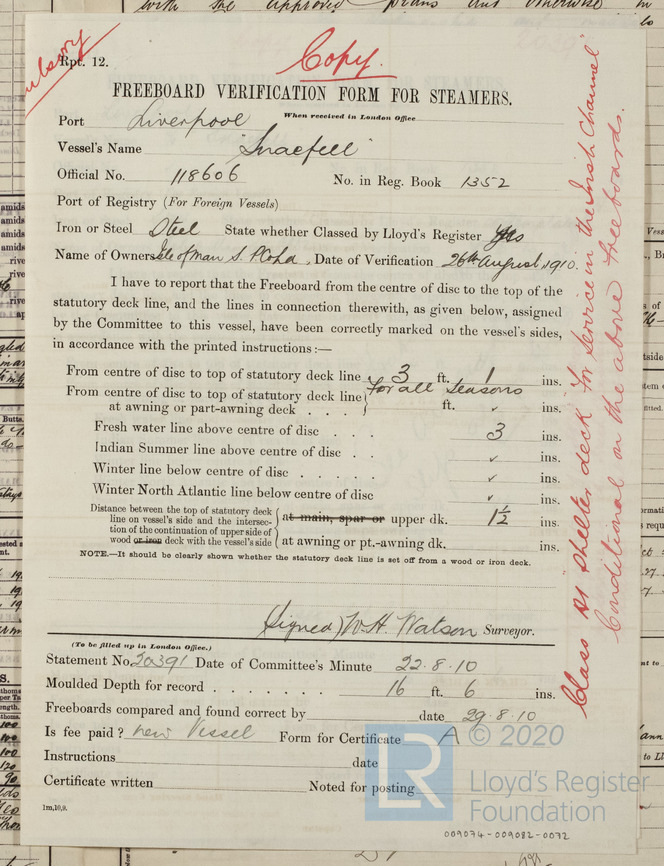 with the approved plans and otherwise in
Rpt. 12.
Copy.
FREEBOARD VERIFICATION FORM FOR STEAMERS.
Port Liverpool When received in London Office
Vessel's Name "Snaefell"
Official No. 118606 No. in Reg. Book 1352
Port of Registry (For Foreign Vessels)
Iron or Steel Steel State whether Classed by Lloyd's Register Yes
Name of Owners Isle of man S. P. Co Ld, Date of Verification 26th August, 1910.
I have to report that the Freeboard from the centre of disc to the top of the
statutory deck line, and the lines in connection therewith, as given below, assigned
by the Committee to this vessel, have been correctly marked on the vessel's sides,
in accordance with the printed instructions :—
From centre of disc to top of statutory deck line 3 ft. 1 ins.
for all seasons
From centre of disc to top of statutory deck line
at awning or part-awning deck . . . ft. ✓ ins.
Fresh water line above centre of disc . . . 3 ins.
Indian Summer line above centre of disc . . ✓ ins.
Winter line below centre of disc . . . . . ✓ ins.
Winter North Atlantic line below centre of disc ✓ ins.
Distance between the top of statutory deck
line on vessel's side and the intersec-
tion of the continuation of upper side of
wood or iron deck with the vessel's side
at main, spar or upper dk. 1½ ins.
at awning or pt.-awning dk. ins.
NOTE.—It should be clearly shown whether the statutory deck line is set off from a wood or iron deck.
Signed) W. H. Watson Surveyor.
(To be filled up in London Office.)
Statement No. 20391 Date of Committee's Minute 22.8.10
Moulded Depth for record . . . . . . . 16 ft. 6 ins.
Freeboards compared and found correct by date 29.8.10
Is fee paid? new Vessel Form for Certificate A
Instructions date
Certificate written Noted for posting
1m,10,9.
Class as shelter deck "for service in the Irish Channel"
Conditional on the above freeboards.
© 2020
LR
Lloyd's Register
Foundation
009074-009082-0072